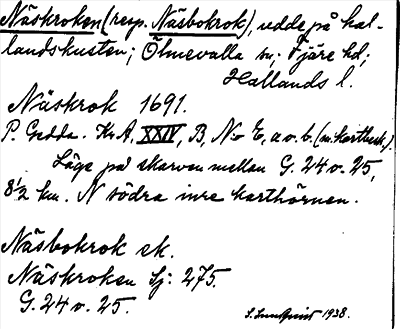 Näskroken (resp. Näsbokrok), udde på hal-
landskusten; Ölmevalla sn; Fjäre hd;
Hallands l.
Näskrok 1691.
P. Gedda. Kr. A, XXIV, B, No E, a o. b. (m. kartbesk.)
Läge på skarven mellan G. 24 o. 25,
8 1/2 km. N södra inre karthörnen.
Näsbokrok ek.
Näskroken Sj: 275.
G. 24 o. 25.
S. Lundquist 1938.